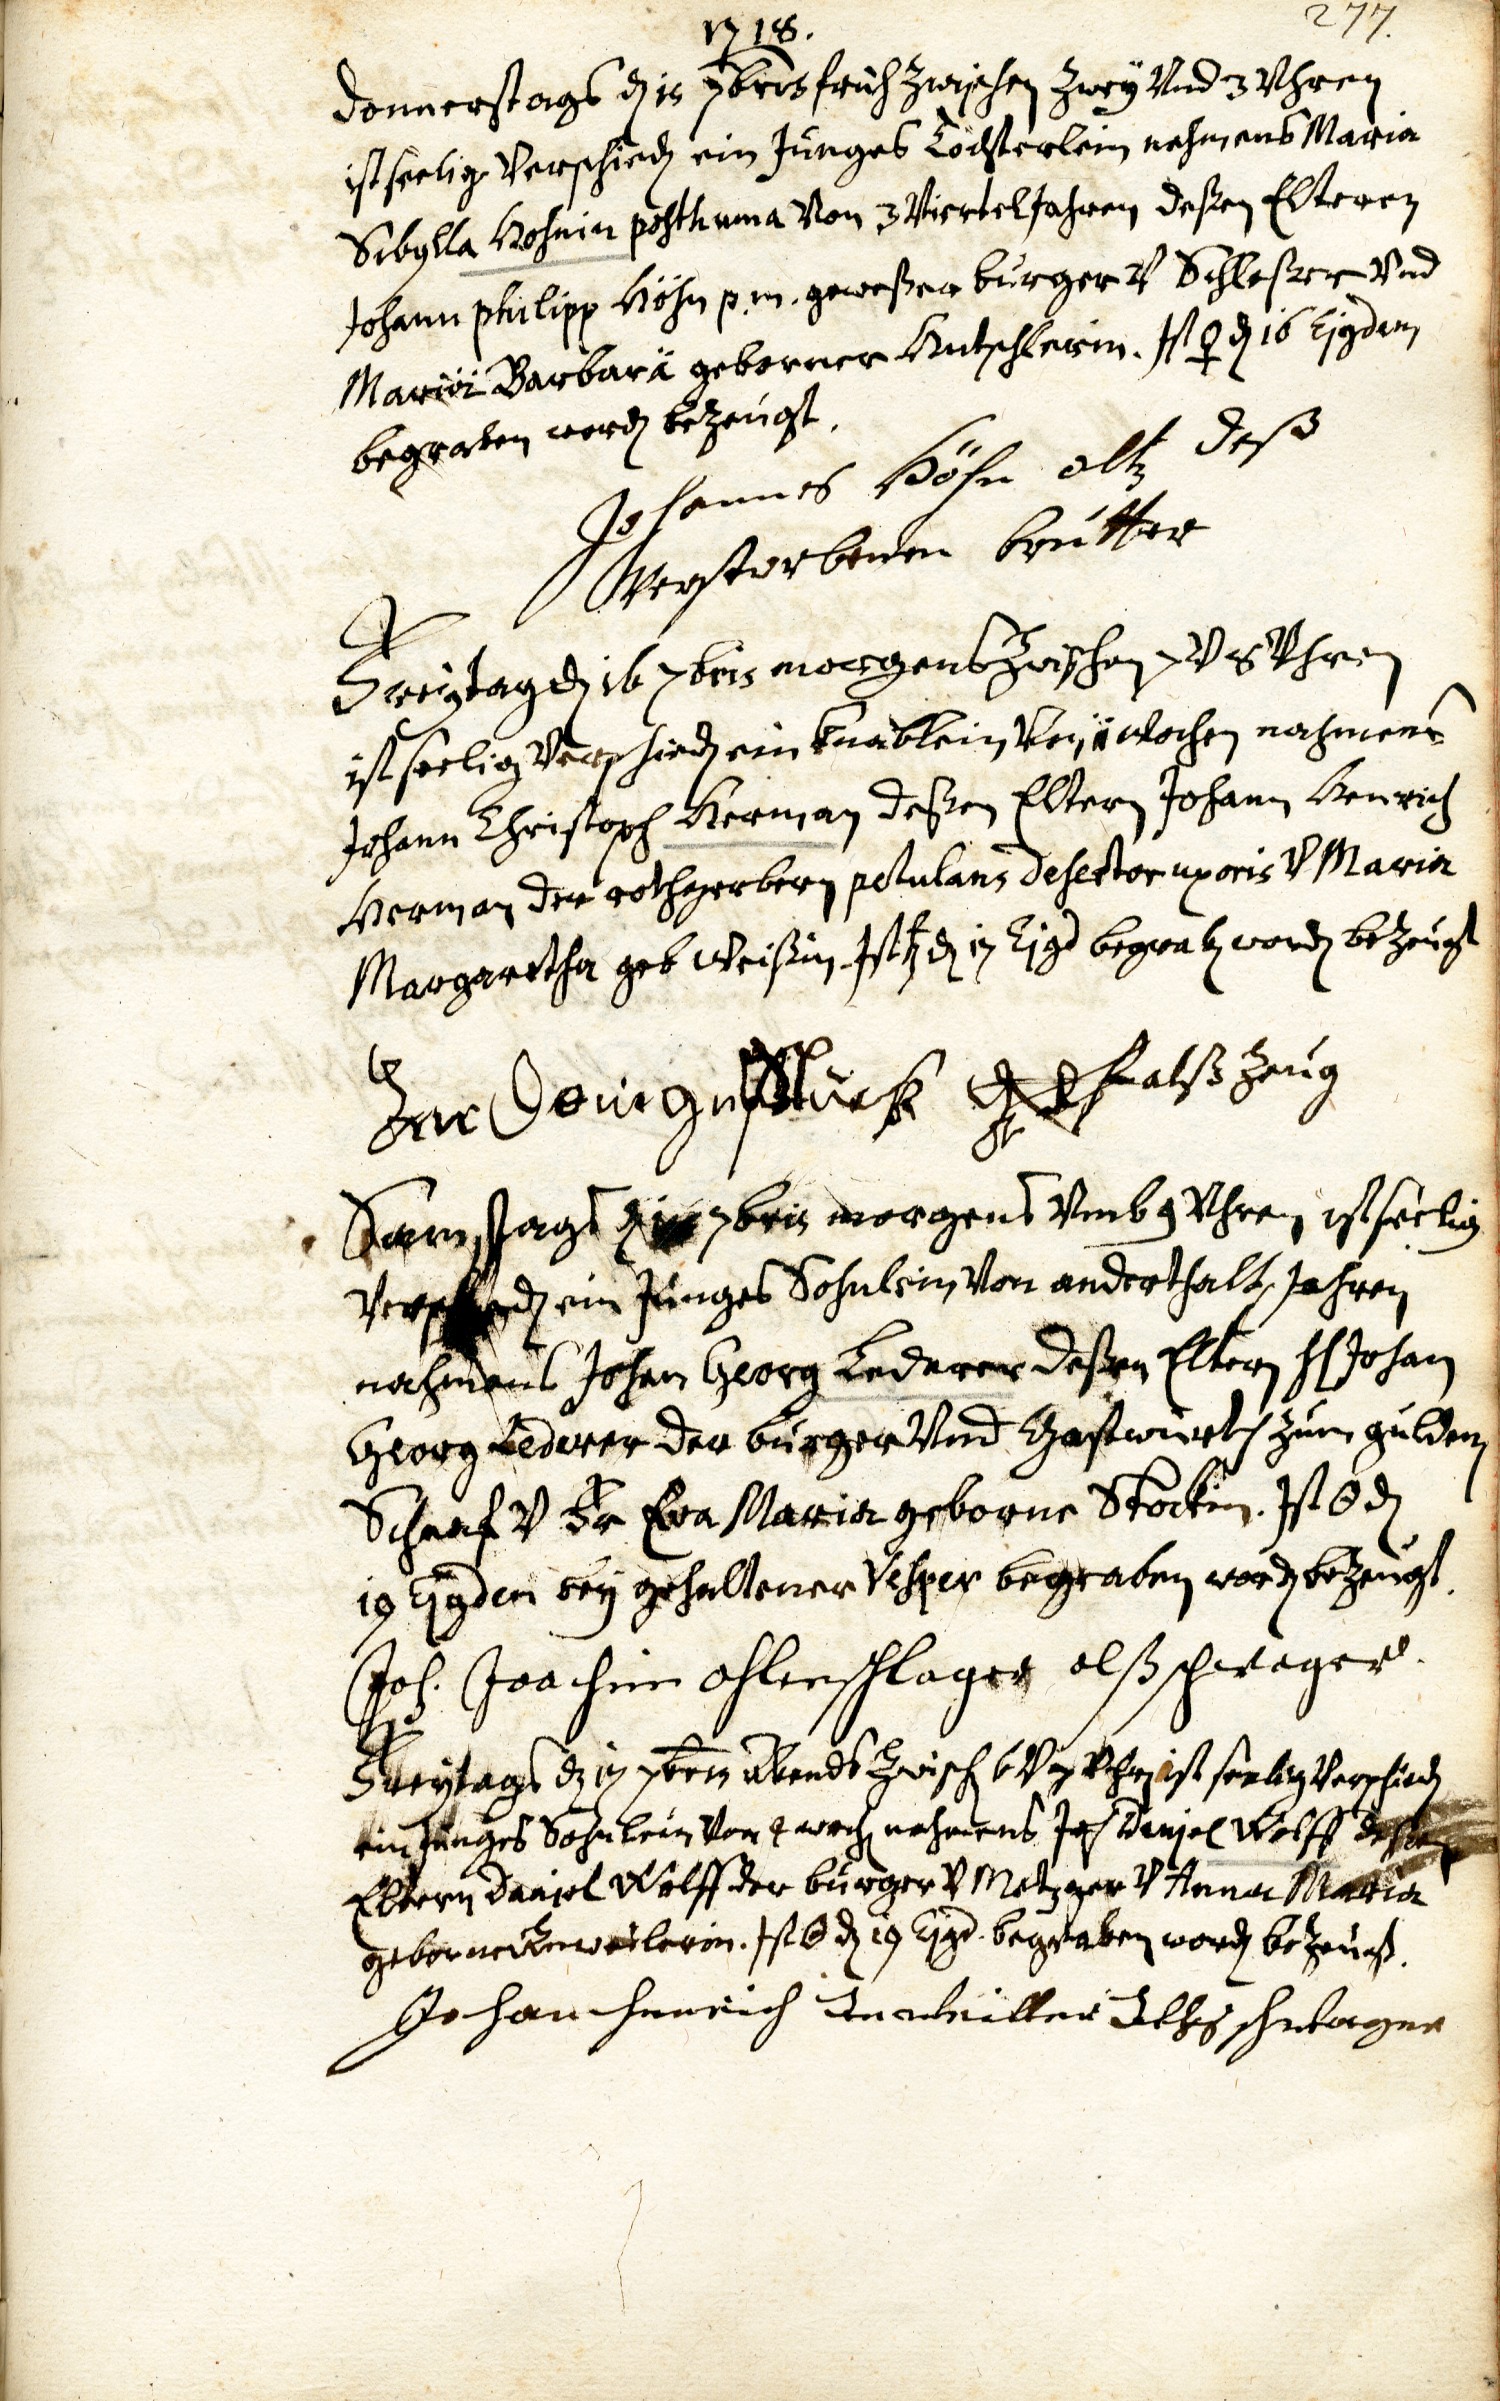 1718. 277.
Donnerstags d 15 7bris früh Zwischen Zwey Vnd 3 Vhren
ist seelig Verschied ein Junges Töchterlein nahmens Maria
Sibylla Höhnin posthuma Von 3 Viertel Jahren deßen Elteren
Johann Philipp Höhn p.m. geweßener burger V Schloßer Vnd
Mariä Barbarä geborner Kutschlerin. Ist ♀ d 16 Ejgdem
begraben word bezeugt.
Johannes Höhn alß deß
Verstorbenen brutter
Freytag d 16 7bris morgens Zwischen 7 V 8 Vhren
ist seelig Verschied ein Knäblein Von wochen nahmens
Johann Christoph Herman deßen Eltern Johann Henrich
Herman der rothgerber petulans desertor uxoris V Maria
Margaretha geb Weißin. Ist ♄ d 17 Ejgd begrab word bezeugt
alß Zeug
Samstags d 7bris morgens Vmb 9 Vhren ist seelig
Verschied ein Junges Sohnlein Von anderthalb Jahren
nahmens Johan Georg Lederer deßen Eltern H Johan
Georg Lederer der burger Vnd Gastwirth zum gulden
Schaaf V Fr Eva Maria geborne Stockin. Ist ☉ d
19 Ejgdem bey gehaltener Vesper begraben word bezeugt.
Joh. Joachim ohlenschlager alß schwager.
Freytags d 17 7bris abends Zwisch 6 V 7 Vhr ist seelig Verschied
ein Junges Sohnlein Von 4 woch nahmens Joh Daniel Wolff deßen
Eltern Daniel Wolff der burger V Metzger V Anna Maria
geborne . Ist ☉ d 19 Ejgd. begraben word bezeugt.
Johan Henrich alß schwager